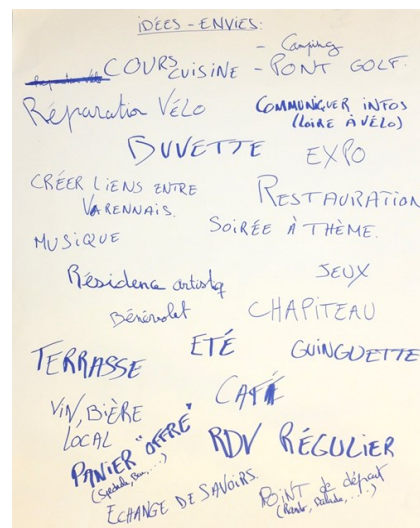 IDÉES - ENVIES:
- Camping
COURS CUISINE - PONT GOLF.
Réparation VÉLO
COMMUNIQUER INFOS
(LOIRE À VÉLO)
BUVETTE
EXPO
CRÉER LIENS ENTRE
VARENNAIS.
RESTAURATION
SOIRÉE À THÈME.
MUSIQUE
Résidence artistq
JEUX
Bénévolat
CHAPITEAU
TERRASSE
ETÉ
GUINGUETTE
CAFÉ
VIN, BIÈRE
LOCAL
PANIER "OFFRE"
RDV RÉGULIER
ECHANGE DE SAVOIRS.
POINT de départ